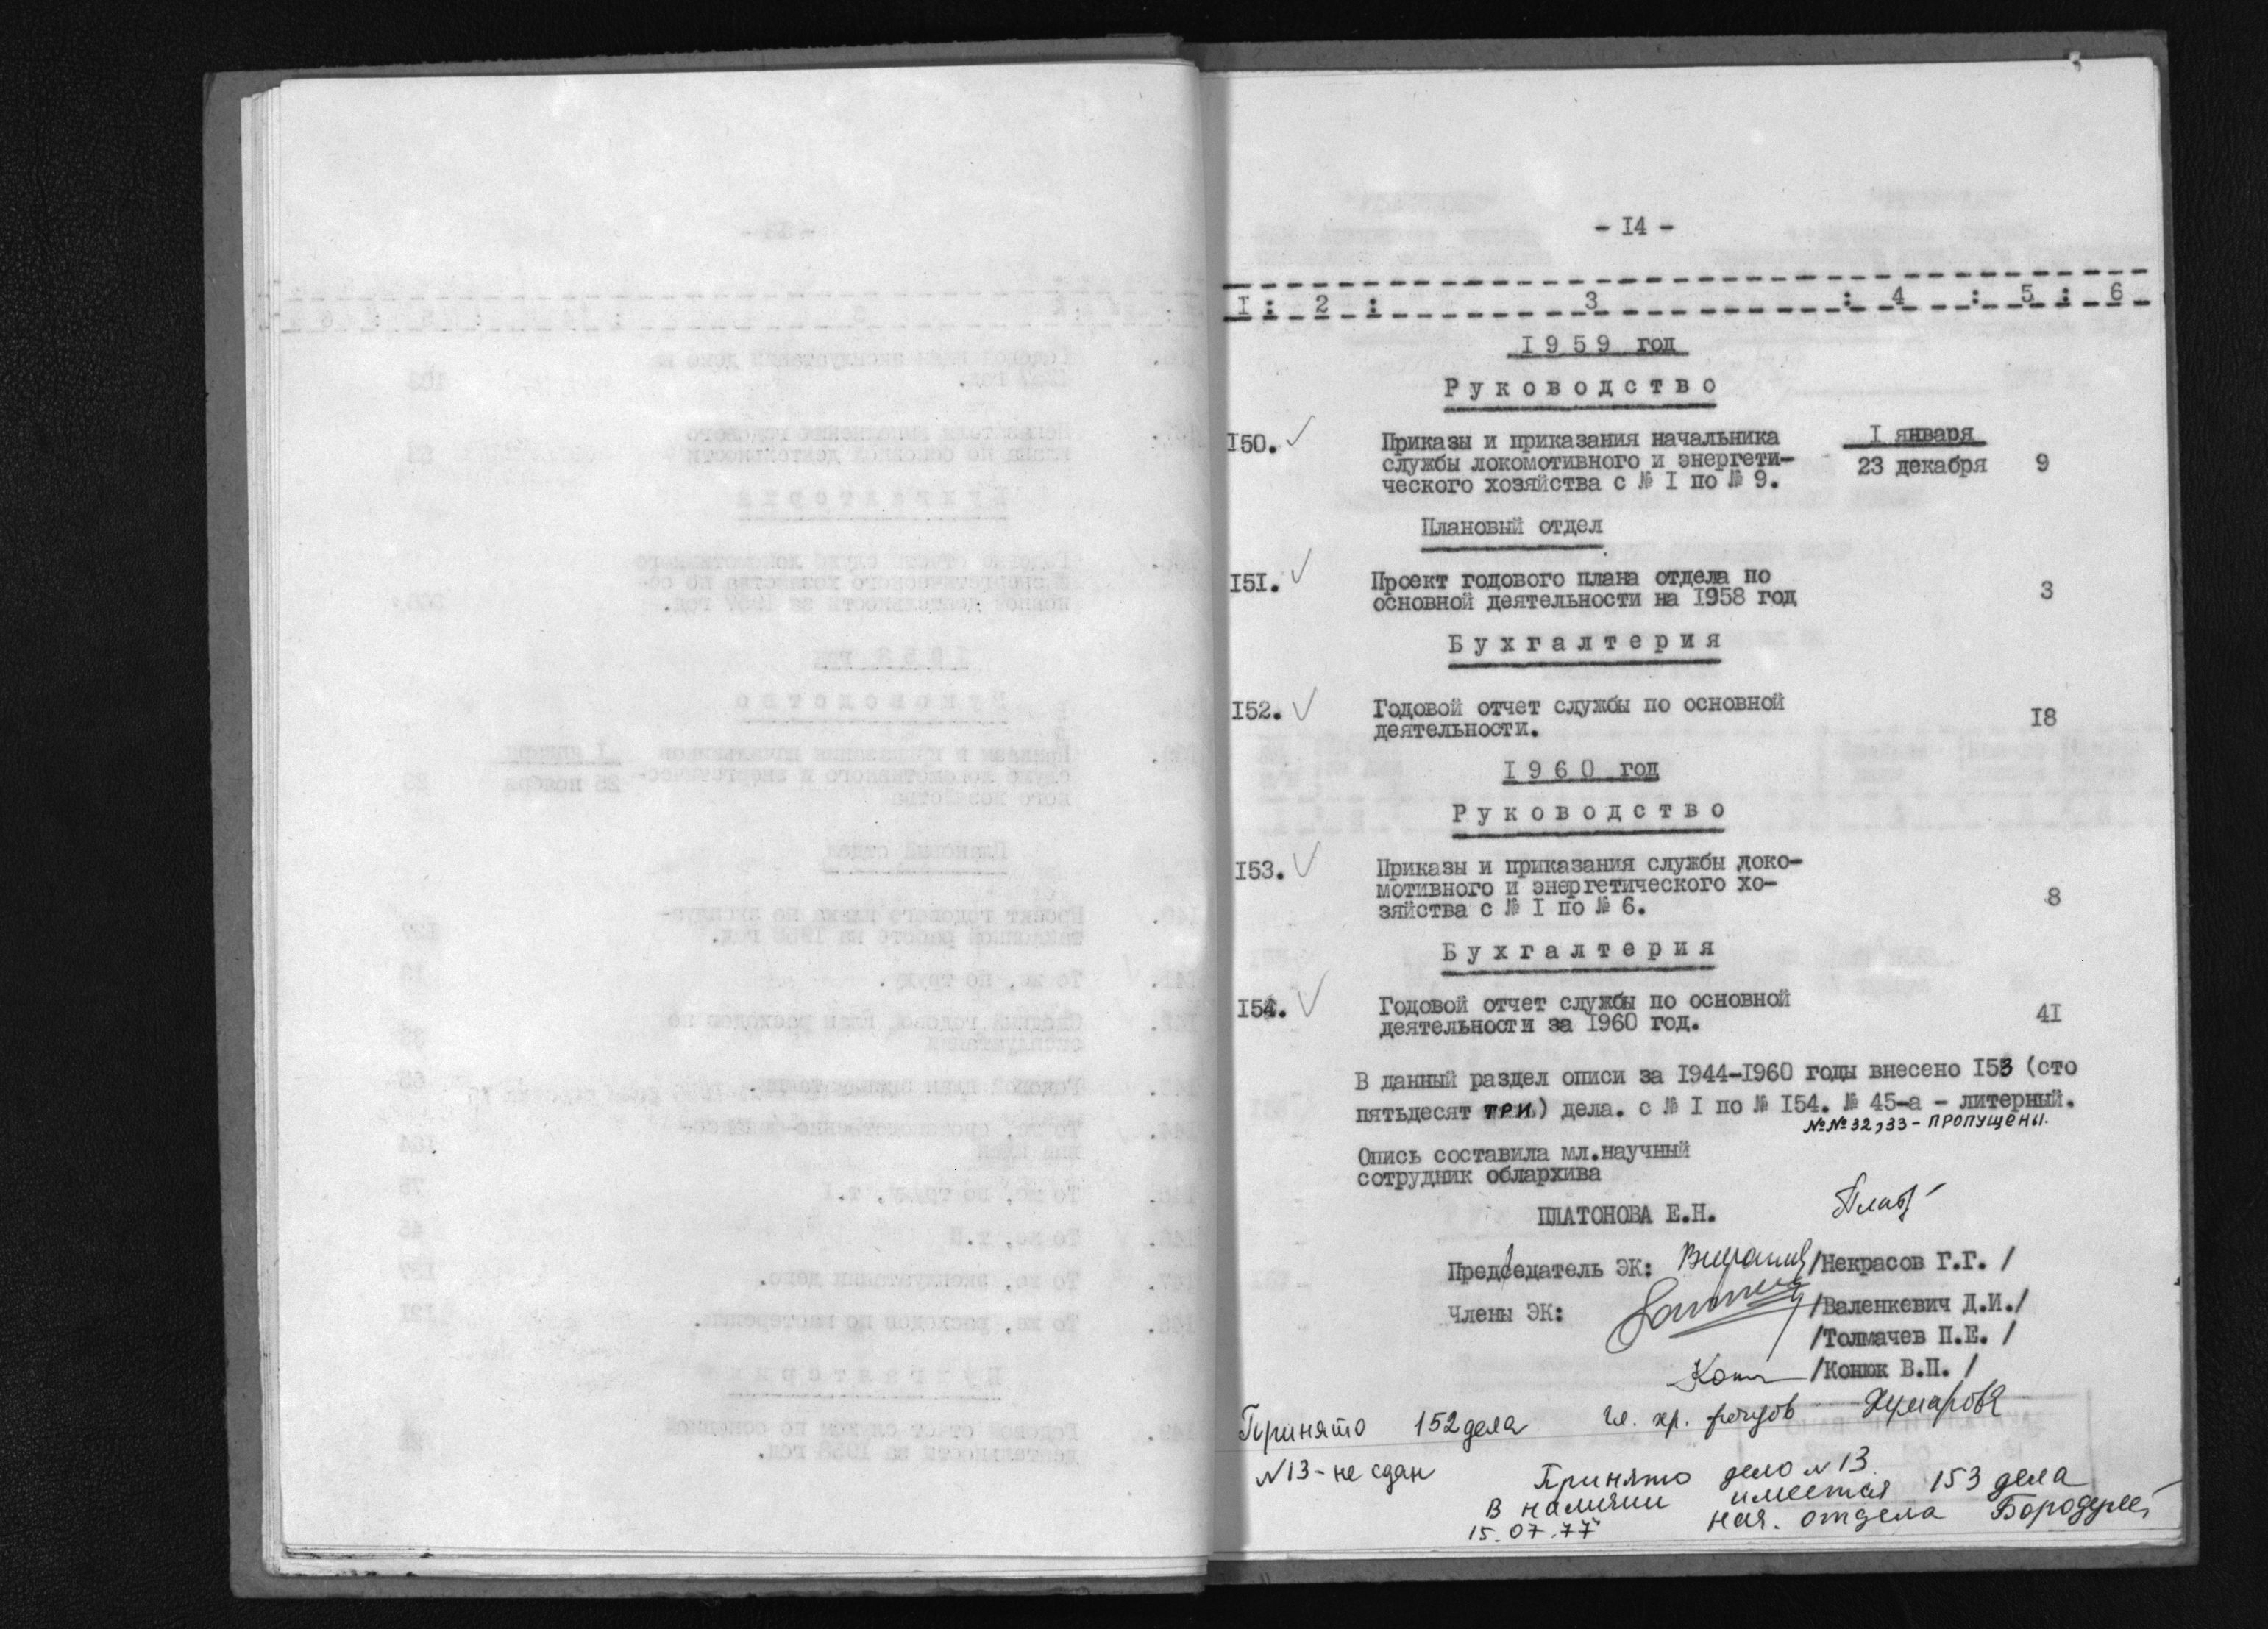 - I4 -
I : 2 : 3 : 4 : 5 : 6
I959 год
Руководство
I50. Приказы и приказания начальника I января
службы локомотивного и энергети- 23 декабря 9
ческого хозяйства с № I по № 9.
Плановый отдел
I5I. Проект годового плана отдела по
основной деятельности на I958 год 3
Бухгалтерия
I52. Годовой отчет службы по основной
деятельности. I8
I960 год
Руководство
I53. Приказы и приказания службы локо-
мотивного и энергетического хо-
зяйства с № I по № 6. 8
Бухгалтерия
I54. Годовой отчет службы по основной
деятельности за I960 год. 4I
В данный раздел описи за I944-I960 годы внесено I53 (сто
пятьдесят три) дела. с № I по № I54. № 45-а - литерный.
№№32,33 - пропущены.
Опись составила мл.научный
сотрудник обларxива
ПЛАТОНОВА Е.Н.
Председатель ЭК: /Некрасов Г.Г. /
Члены ЭК: /Валенкевич Д.И./
/Толмачев П.Е. /
/Конюк В.П. /
Принято 152 дела гл. хр. фондов
N13 - не сдан
Принято дело N 13
В наличии имеется 153 дела
15.07.77 нач. отдела